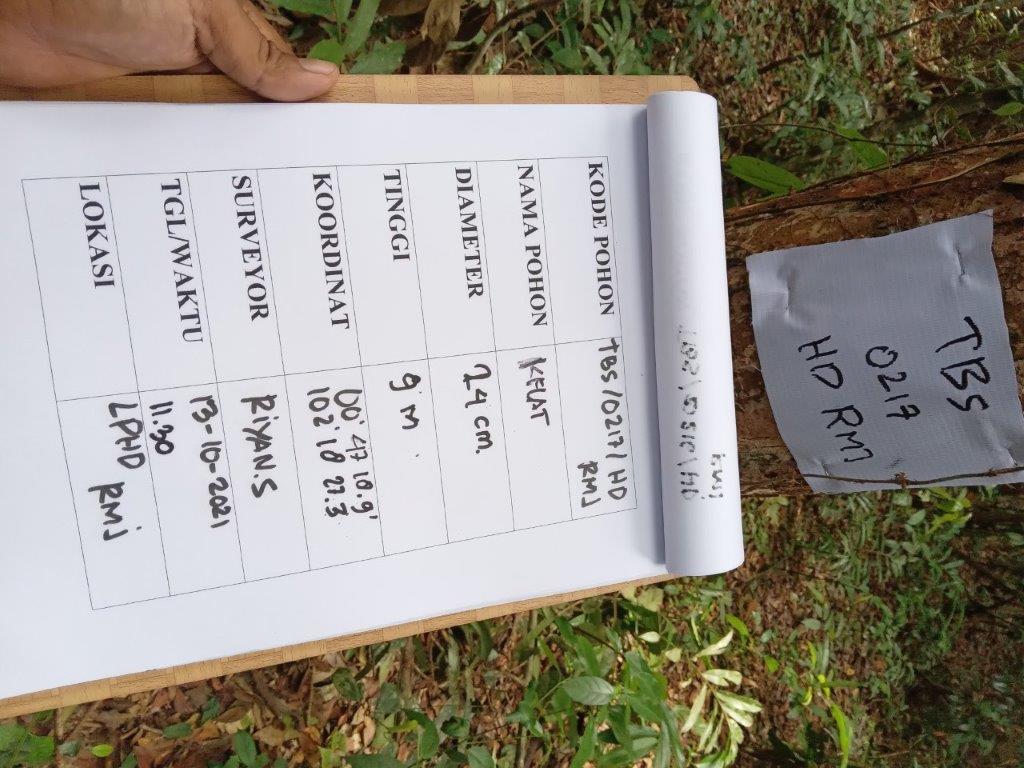 TBS
0217
HD RMJ
KODE POHON TBS/0217/HD
RMJ
NAMA POHON KELAT
DIAMETER 24 cm.
TINGGI 9 M
KOORDINAT 00° 47 18.9'
102° 18 27.3
SURVEYOR RiYAN.S
TGL/WAKTU 13-10-2021
11.30
LOKASI LPHD
RMJ